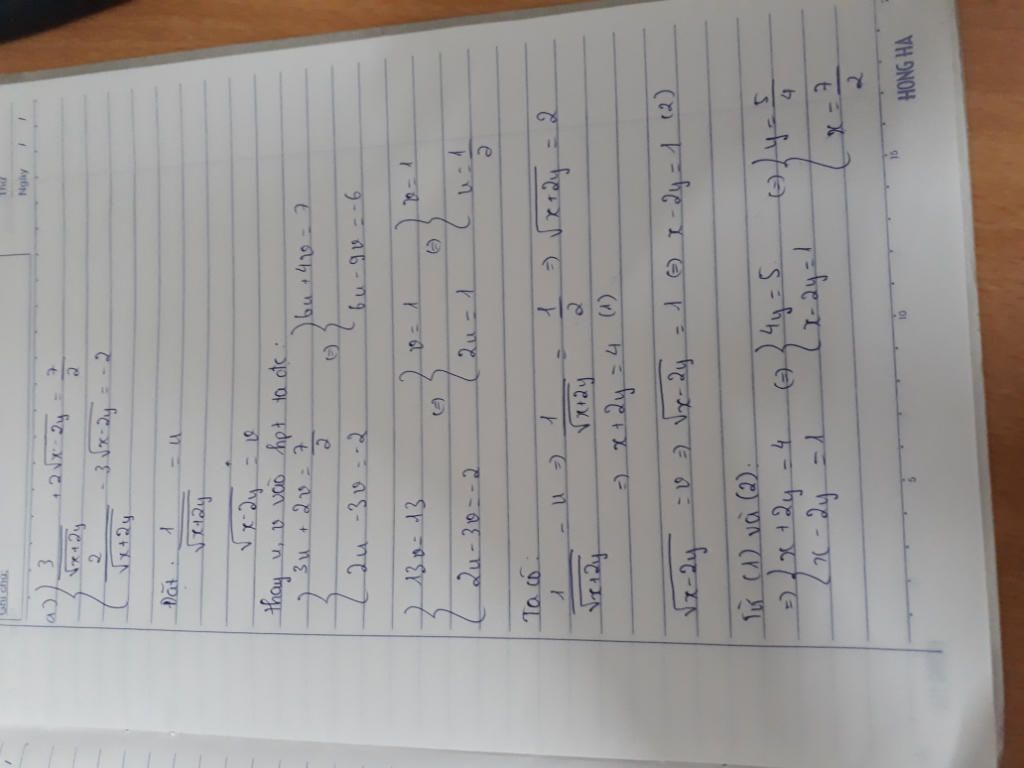 Thứ
Ngày / /
a) { 3/√(x+2y) + 2√(x-2y) = 7/2
{ 2/√(x+2y) - 3√(x-2y) = -2
Đặt: 1/√(x+2y) = u
√(x-2y) = v
thay u, v vào hpt ta đc:
{ 3u + 2v = 7/2 (=) { 6u + 4v = 7
{ 2u - 3v = -2 { 6u - 9v = -6
{ 13v = 13 (=) { v = 1 (=) { v = 1
{ 2u - 3v = -2 { 2u = 1 { u = 1/2
Ta có:
1/√(x+2y) = u => 1/√(x+2y) = 1/2 => √(x+2y) = 2
=> x + 2y = 4 (1)
√(x-2y) = v => √(x-2y) = 1 (=) x - 2y = 1 (2)
Từ (1) và (2).
=> { x + 2y = 4 (=) { 4y = 5. (=) { y = 5/4
{ x - 2y = 1 { x - 2y = 1 { x = 7/2
5 10 15
HONG HA